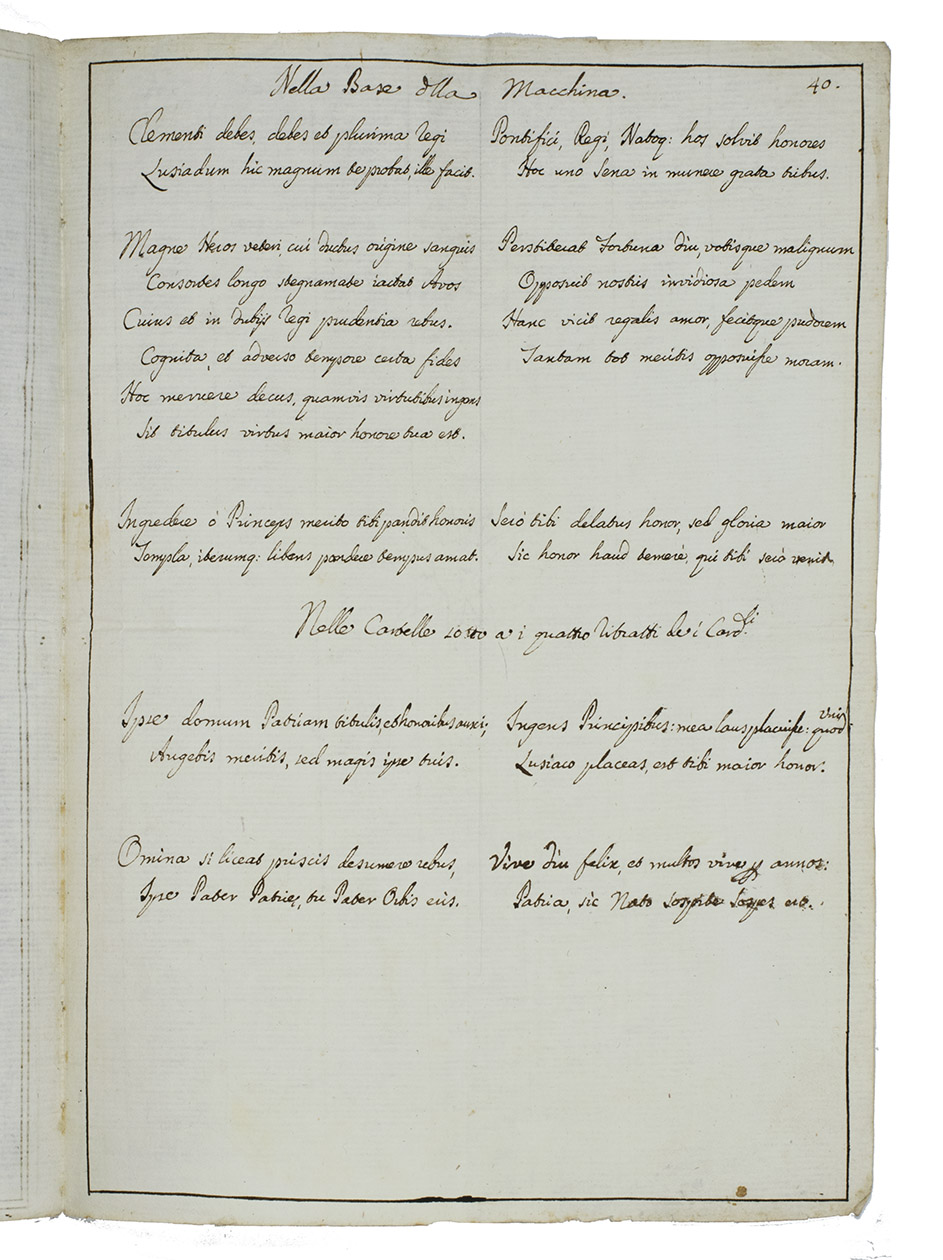 Nella Base della Macchina. 40.
Clementi debes, debes et plurima Regi
Lusiadum hic magnum te probat, ille facit.
Pontifici, Regi, Natoq: hos solvit honores
Hoc uno Sena in munere grata tribus.
Magne Heros veteri, cui ductus origine sanguis
Consortes longo stegnamate iactat Avos
Cuius et in dubijs Regi prudentia rebus.
Cognita, et adverso tempore certa fides
Hoc meruere decus, quamvis virtutibus ingens
Sit titulus virtus maior honore tua est.
Perstiterat Fortuna diu, votisque malignum
Opposuit nostris invidiosa pedem
Hanc vicit regalis amor, fecitque pudorem
Tantam tot meritis opposuisse moram.
Ingredere ó Princeps merito tibi pandit honoris
Templa, iterumq: libens pandere tempus amat.
Seró tibi delatus honor, sed gloria maior
Sic honor haud temere, qui tibi seró venit.
Nelle Cartelle sotto a i quattro Ritratti de i Card.li
Ipse domum Patriam titulis, et honoribus auxi;
Augebis meritis, sed magis ipse tuis.
Ingens Principibus: mea laus placuisse: quod viro
Lusiaco placeas, est tibi maior honor.
Omina si liceat priscis desumere rebus,
Ipse Pater Patrie, tu Pater Orbis eris.
Vive diu felix, et multos vive annos:
Patria, sic Nato sospite sospes erit.